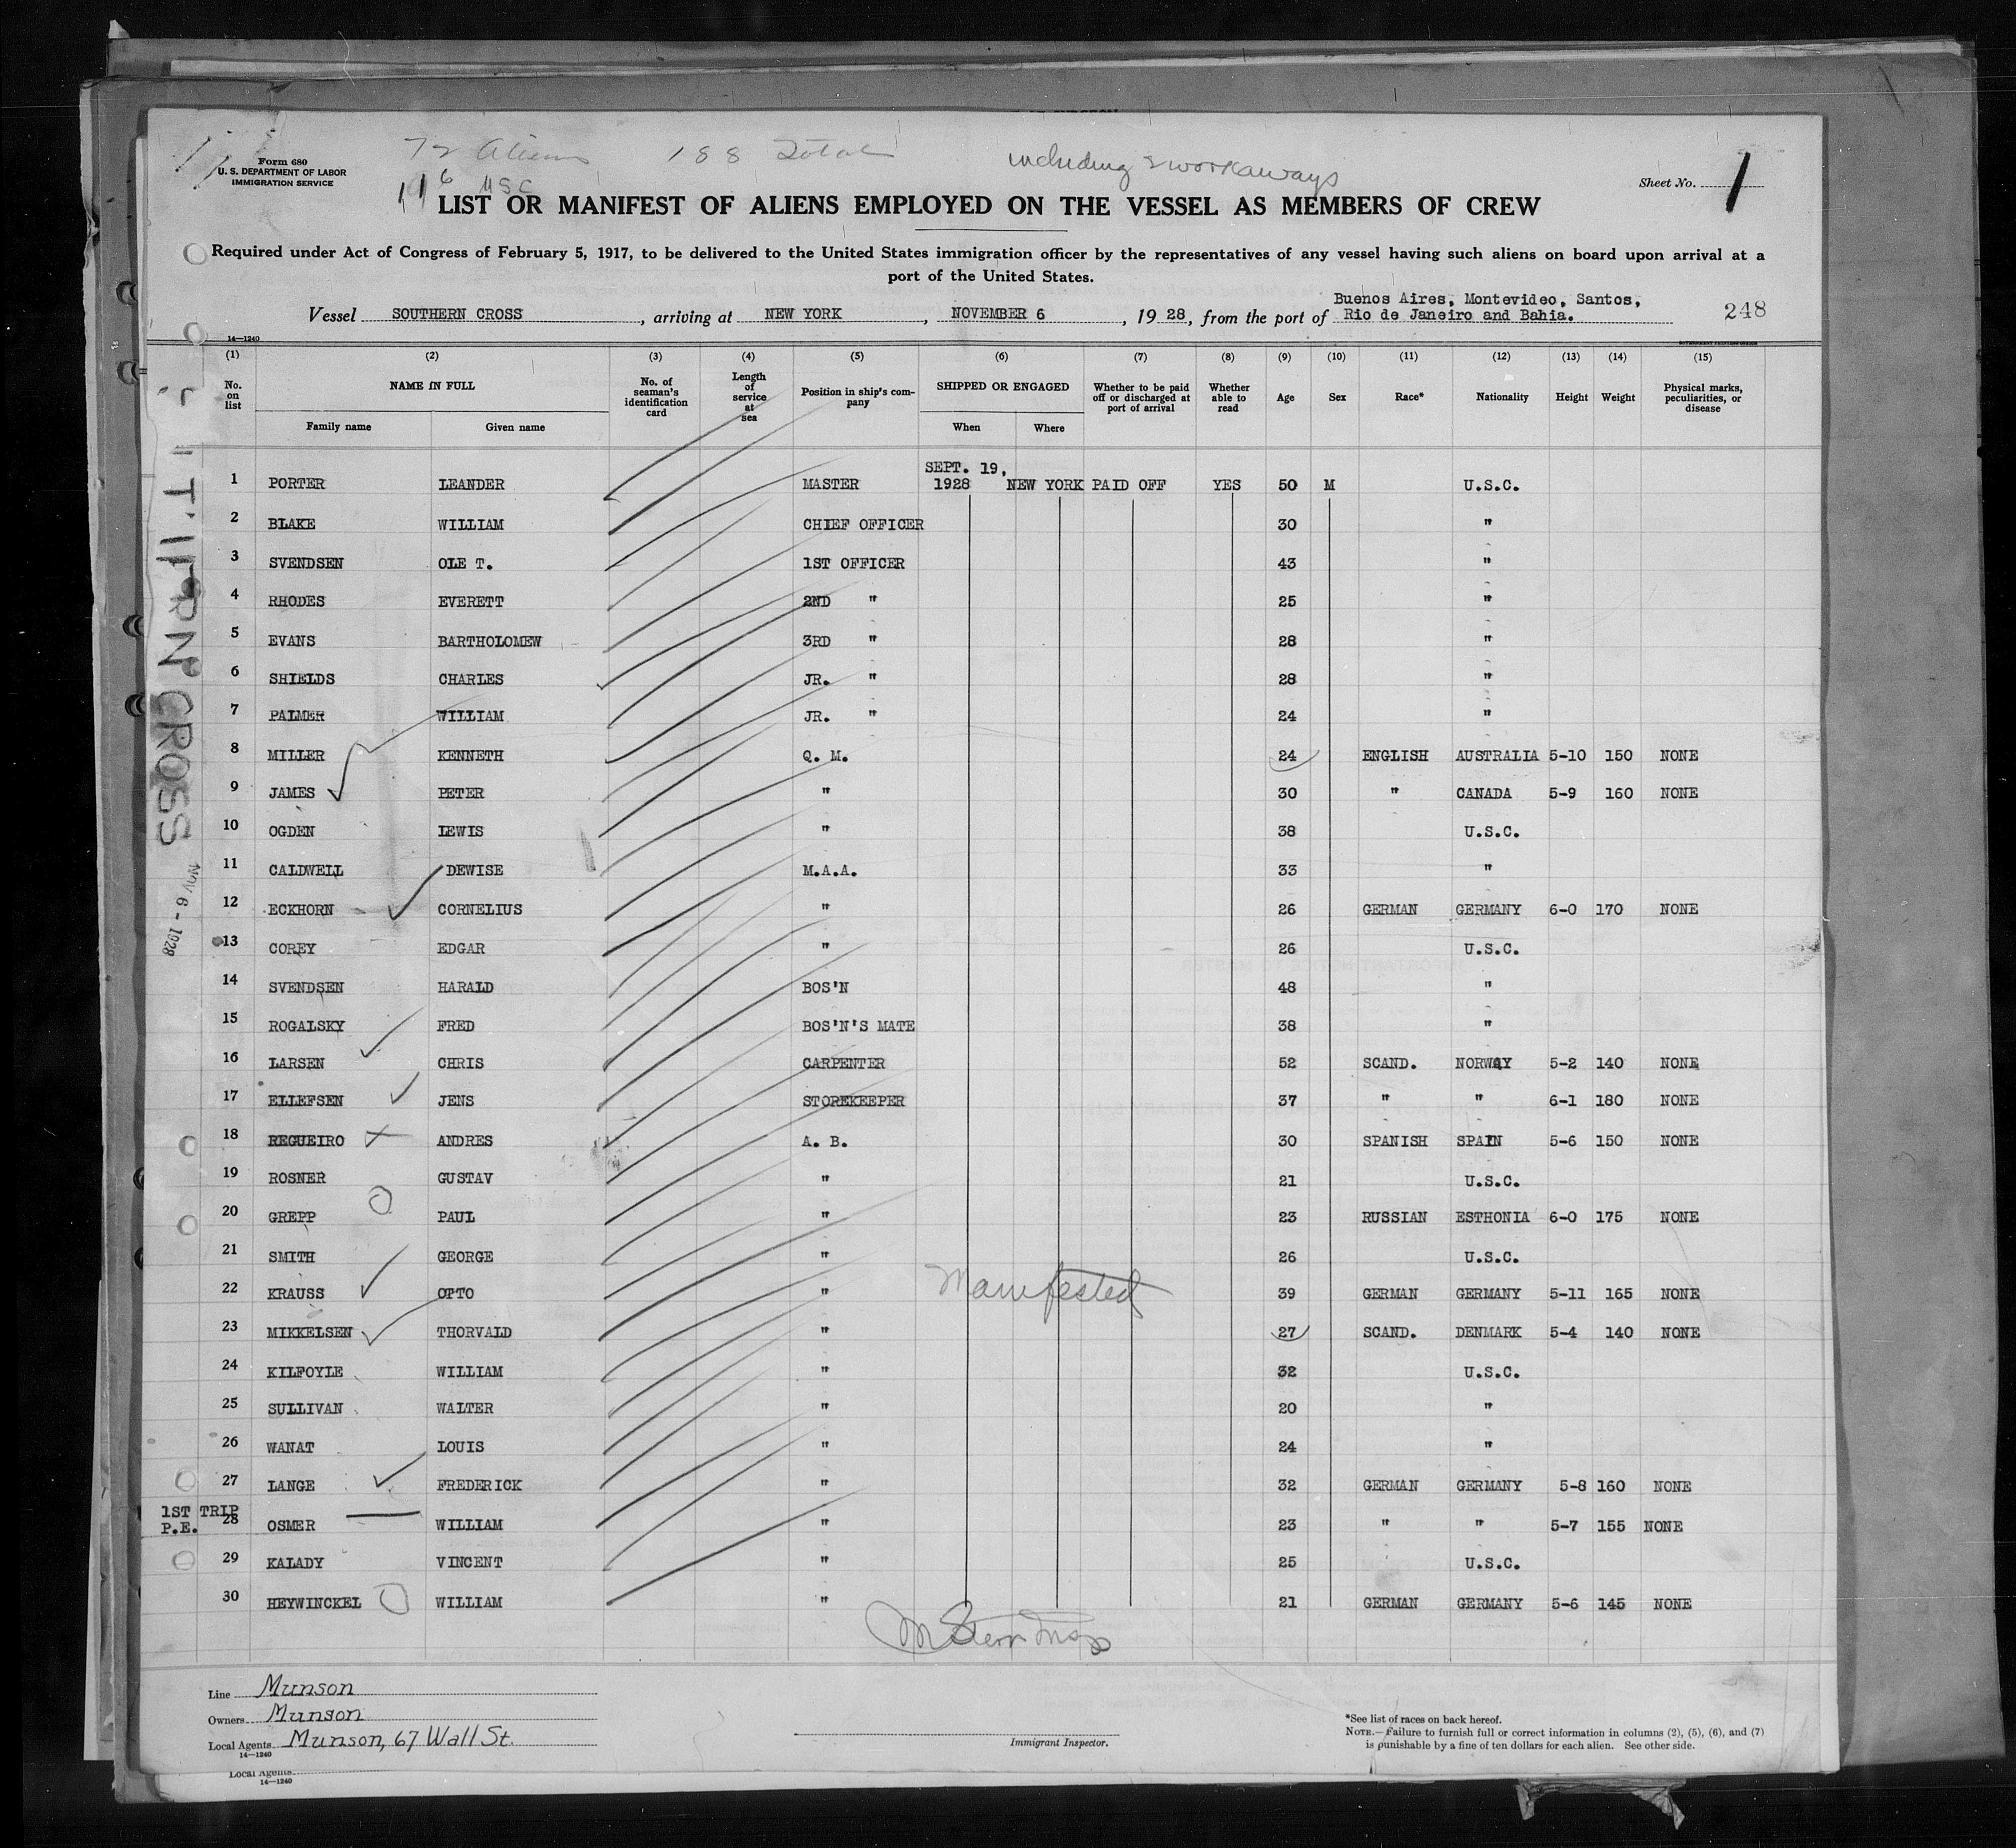 72 Aliens 188 Total including 2 workaways
116 USC
Form 680
U. S. DEPARTMENT OF LABOR
IMMIGRATION SERVICE
Sheet No. 1
LIST OR MANIFEST OF ALIENS EMPLOYED ON THE VESSEL AS MEMBERS OF CREW
Required under Act of Congress of February 5, 1917, to be delivered to the United States immigration officer by the representatives of any vessel having such aliens on board upon arrival at a
port of the United States.
Vessel SOUTHERN CROSS, arriving at NEW YORK, NOVEMBER 6, 1928, from the port of Buenos Aires, Montevideo, Santos,
Rio de Janeiro and Bahia.
248
14—1240
(1) (2) (3) (4) (5) (6) (7) (8) (9) (10) (11) (12) (13) (14) (15)
No. on list NAME IN FULL No. of seaman's identification card Length of service at sea Position in ship's company SHIPPED OR ENGAGED Whether to be paid off or discharged at port of arrival Whether able to read Age Sex Race* Nationality Height Weight Physical marks, peculiarities, or disease
Family name Given name When Where
1 PORTER LEANDER MASTER SEPT. 19, 1928 NEW YORK PAID OFF YES 50 M U.S.C.
2 BLAKE WILLIAM CHIEF OFFICER 30 "
3 SVENDSEN OLE T. 1ST OFFICER 43 "
4 RHODES EVERETT 2ND " 25 "
5 EVANS BARTHOLOMEW 3RD " 28 "
6 SHIELDS CHARLES JR. " 28 "
7 PALMER WILLIAM JR. " 24 "
8 MILLER KENNETH Q. M. 24 ENGLISH AUSTRALIA 5-10 150 NONE
9 JAMES PETER " 30 " CANADA 5-9 160 NONE
10 OGDEN LEWIS " 38 U.S.C.
11 CALDWELL DEWISE M.A.A. 33 "
12 ECKHORN CORNELIUS " 26 GERMAN GERMANY 6-0 170 NONE
13 COREY EDGAR " 26 U.S.C.
14 SVENDSEN HARALD BOS'N 48 "
15 ROGALSKY FRED BOS'N'S MATE 38 "
16 LARSEN CHRIS CARPENTER 52 SCAND. NORWAY 5-2 140 NONE
17 ELLEFSEN JENS STOREKEEPER 37 " " 6-1 180 NONE
18 REGUEIRO ANDRES A. B. 30 SPANISH SPAIN 5-6 150 NONE
19 ROSNER GUSTAV " 21 U.S.C.
20 GREPP PAUL " 23 RUSSIAN ESTHONIA 6-0 175 NONE
21 SMITH GEORGE " 26 U.S.C.
22 KRAUSS OTTO " 39 GERMAN GERMANY 5-11 165 NONE
Manifested
23 MIKKELSEN THORVALD " 27 SCAND. DENMARK 5-4 140 NONE
24 KILFOYLE WILLIAM " 32 U.S.C.
25 SULLIVAN WALTER " 20 "
26 WANAT LOUIS " 24 "
27 LANGE FREDERICK " 32 GERMAN GERMANY 5-8 160 NONE
1ST TRIP
P.E. 28 OSMER WILLIAM " 23 " " 5-7 155 NONE
29 KALADY VINCENT " 25 U.S.C.
30 HEYWINCKEL WILLIAM " 21 GERMAN GERMANY 5-6 145 NONE
CROSS
NOV 6 - 1928
Line Munson
Owners Munson
Local Agents Munson, 67 Wall St.
14—1240
Immigrant Inspector.
*See list of races on back hereof.
NOTE.—Failure to furnish full or correct information in columns (2), (5), (6), and (7)
is punishable by a fine of ten dollars for each alien. See other side.
Local Agents
14—1240